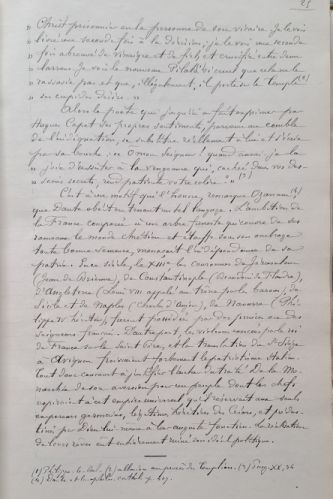 25
" Christ prisonnier en la personne de son vicaire. Je le vois
" livré une seconde fois à la dérision; je le vois une seconde
" fois abreuvé de vinaigre et de fiel, et crucifié entre deux
" larrons. Je vois le nouveau Pilate si cruel que cela ne le
" rassasie pas et que, illégalement, il porte au temple (2)
" ses cupides désirs. "
Alors le poète qui jusqu'ici a fait exprimer par
Hugues Capet ses propres sentiments, parvenu au comble
de l'indignation, se substitue réellement à lui et s'écrie
par sa bouche: " O mon Seigneur! quand aurai-je la
" joie d'assister à la vengeance qui, cachée dans vos des-
" seins secrets, rend patiente votre colère " (3)
C'est à un motif qui l'honore, remarque Ozanam (4)
que Dante obéit en tenant un tel langage. L'ambition de
la France comparée à un arbre funeste qui couvre de ses
rameaux le monde chrétien et étouffe sous son ombrage
toute bonne semence, menaçait l'indépendance de sa
patrie. En ce siècle, le XIIIe, les couronnes de Jérusalem
(Jean de Brienne), de Constantinople (Baudouin de Flandre),
d'Angleterre (Louis VIII appelé au trône par les barons), de
Sicile et de Naples (Charles d'Anjou), de Navarre (Phi-
lippe IV
des princes ou des
seigneurs français. D'autre part, les violences exercées par le roi
de France sur le Saint Père, et la translation du St Siège
à Avignon froissaient fortement le patriotisme italien.
Tout donc concourait à
l'auteur
De la Mo-
narchia
son aversion pour un peuple dont les chefs
aspiraient à cet empire universel qu'il réservait aux seuls
empereurs germains, légitimes héritiers des Césars, et
par Dieu lui-même à la auguste fonction. La réalisation
de leurs rêves eût entièrement ruiné son idéal politique.
(1) Philippe le Bel. (2) allusion au procès des Templiers. (3) Purg. XX, 94
(4) Dante et la philos. cathol. p.